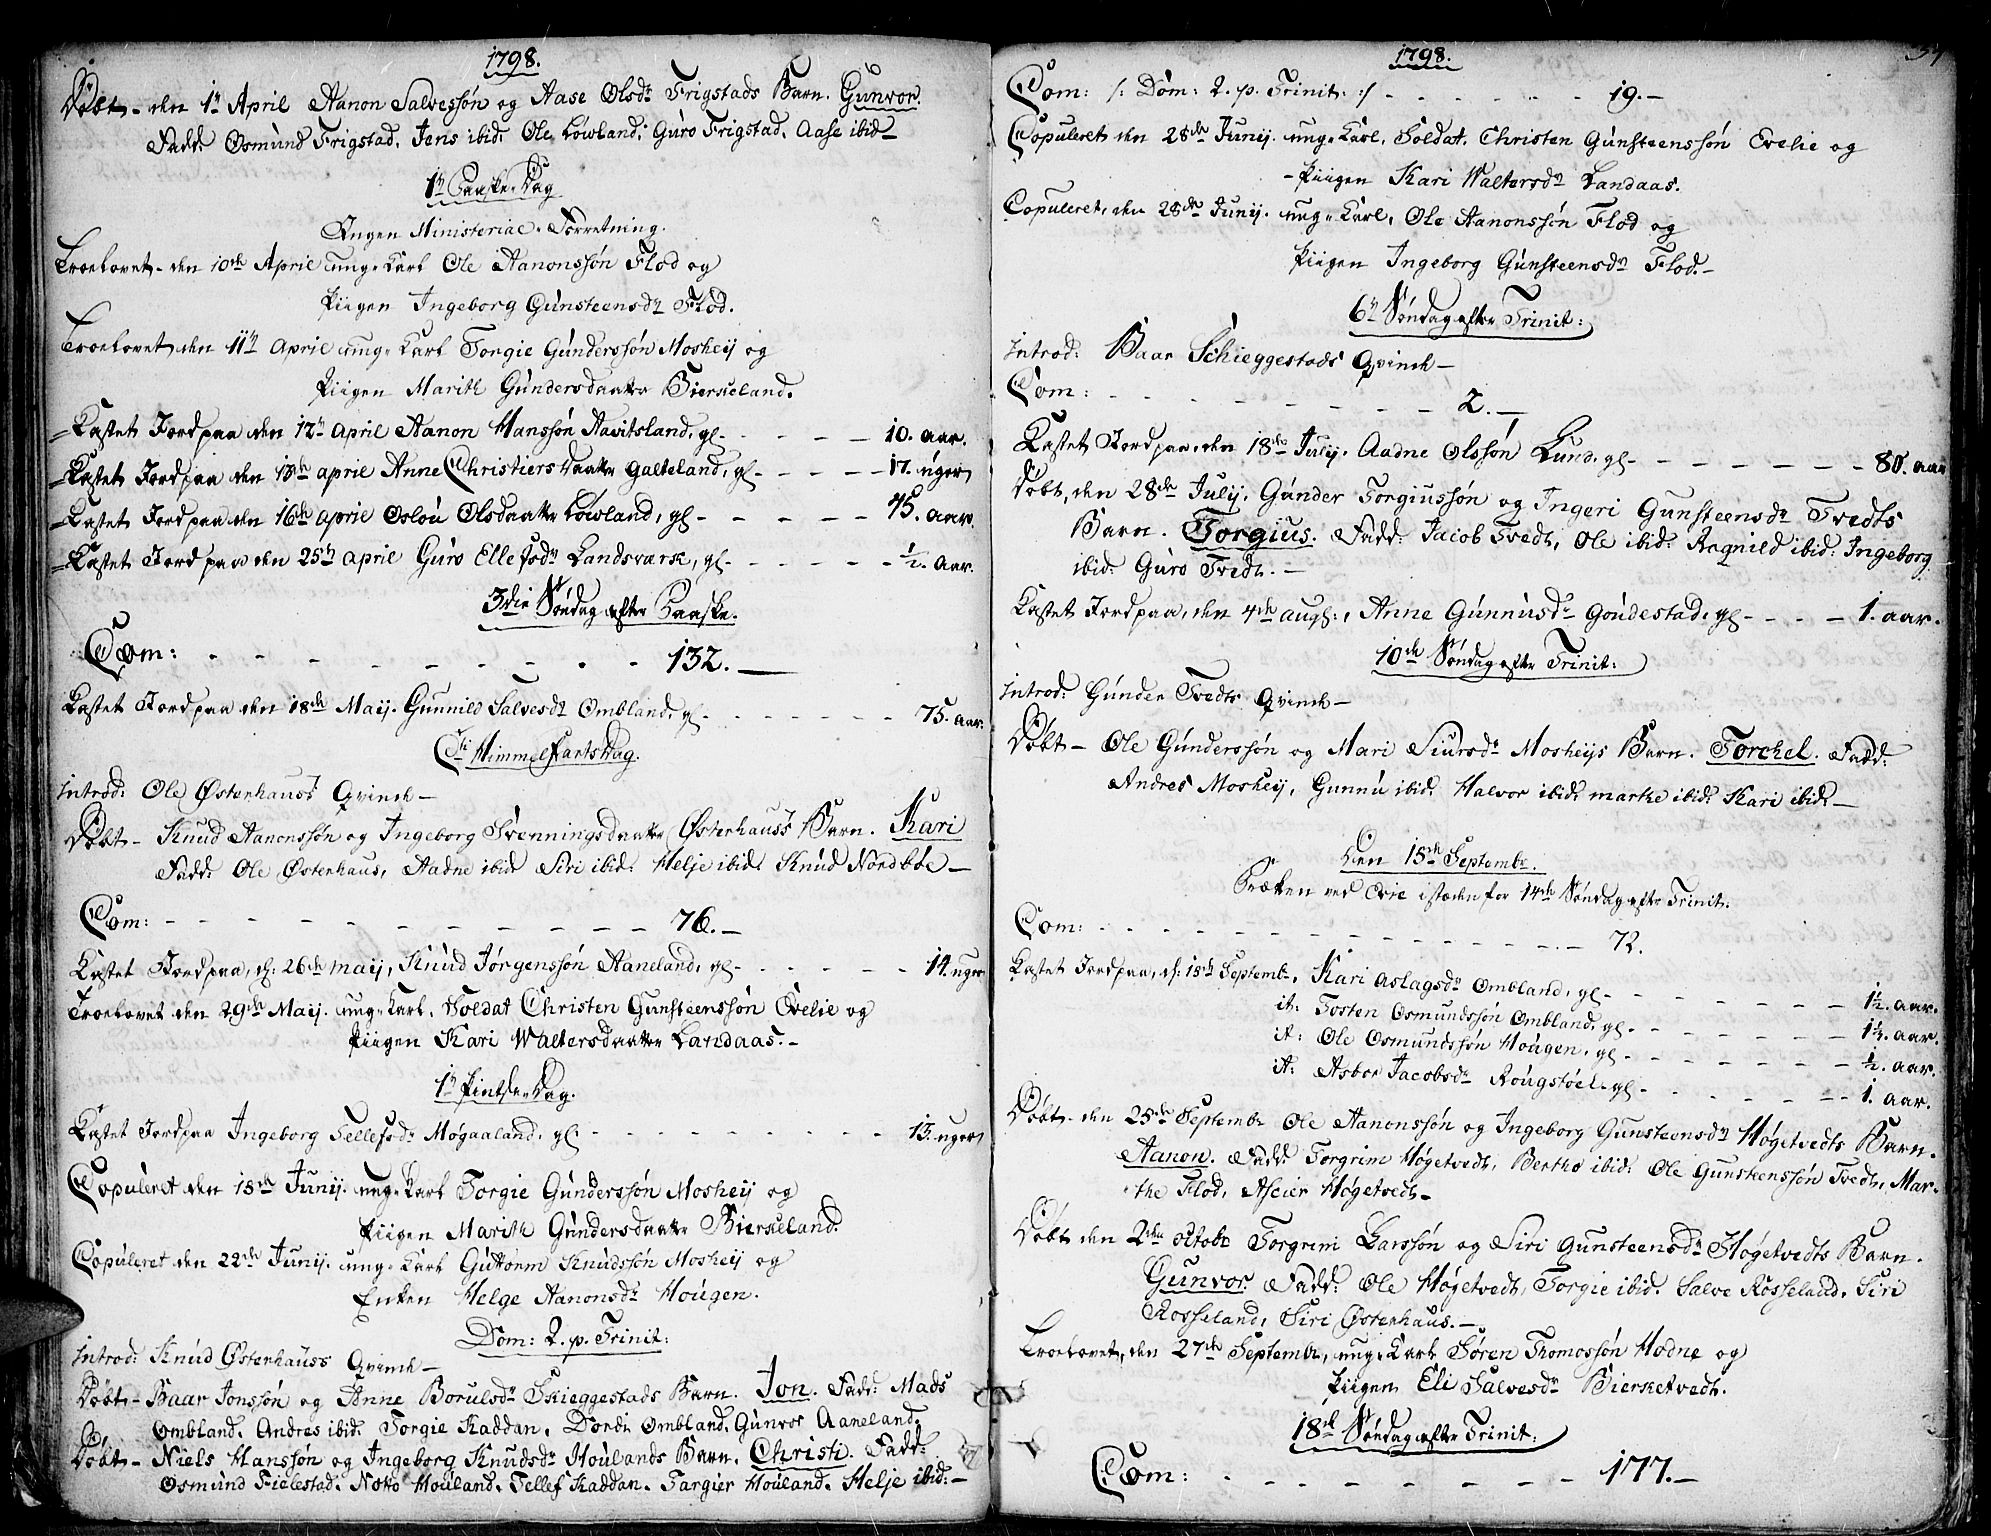 1798.
Døbt – den 1ste April Aanon Salvessøn og Aase Olsdr Frigstads Barn. Gunvor.
Fadd: Osmund Frigstad, Jens ibid: Ole Løwland, Guro Frigstad, Aase ibid –
1te Paaske-Dag
Ingen Ministerial-Forretning.
Troelovet – den 10de April ung-Karl Ole Aanonssøn Flod og
Piigen Ingeborg Gunsteensdr Flod.
Troelovet den 11te April ung-Karl Torgie Gunderssøn Mosheij og
Piigen Marith Gundersdaatter Bierkeland.
Kastet Jord paa den 12te April Aanon Hanssøn Aavitsland, gl – – – – – 10. aar.
Kastet Jord paa den 13de april Anne Christiersdaatter Galteland, gl – – – – – 17. uger
Kastet Jord paa den 16de april Oslou Olsdaatter Løwland, gl – – – – – 45. aar.
Kastet Jord paa den 25de april Guro Ellefsdr Landsverk, gl – – – – – ½. aar.
3die Søndag efter Paaske.
Com: – – – – – – – – 132. –
Kastet Jord paa den 18de Maij. Gunnild Salvesdr Ombland, gl – – – – – 75. aar.
Chr: Himmelfarts Dag.
Introd: Ole Østerhauss Qvinde –
Døbt – Knud Aanonssøn og Ingeborg Svenningsdaatter Østerhauss Barn. Kari
Fadd: Ole Østerhaus, Aadne ibid: Siri ibid: Helje ibid: Knud Nordbøe –
Com: – – – – – – – – 76. –
Kastet Jord paa, d: 26de maij, Knud Jørgenssøn Aaneland, gl – – – – – 14. uger
Troelovet den 29de Maij. ung-Karl, Soldat Christen Gunsteenssøn Evelie og
Piigen Kari Waltersdaatter Landaas. –
1te Pintse-Dag.
Kastet Jord paa Ingeborg Tellefsdr Møgaaland, gl – – – – – 13. uger
Copuleret den 15de Junij. ung-Karl Torgie Gunderssøn Mosheij og
Piigen Marith Gundersdaatter Bierkeland.
Copuleret den 22de Junij. ung-Karl Guttorm Knudssøn Mosheij og
Enken Helge Aanonsdr Hougen.
Dom: 2. p. Trinit:
Introd: Knud Østerhauss Qvinde –
Døbt – Baar Jonssøn og Anne Borulsdr Skieggestads Barn. Jon. Fadd: Mads
Ombland, Andres ibid. Torgie Kaddan, Dordi Ombland, Gunvor Aaneland.
Døbt – Niels Hanssøn og Ingeborg Knudsdr Houlands Barn. Christi. Fadd:
Osmund Fielestad. Notto Houland. Tellef Kaddan. Targier Houland. Helje ibid: –
1798.
Com: /: Dom: 2. p. Trinit: :/ – – – – – – 19. –
Copuleret den 28de Junij. ung-Karl, Soldat. Christen Gunsteenssøn Evelie og
– Piigen Kari Waltersdr Landaas.
Copuleret, den 28de Junij. ung-Karl, Ole Aanonssøn Flod og
Piigen Ingeborg Gunsteensdr Flod. –
6te Søndag efter Trinit:
Introd: Baar Schieggestads Qvinde –
Com: – – – – – – – – 2. –
Kastet Jord paa, den 18de July. Aadne Olssøn Lund, gl – – – – – 80. aar
Døbt, den 28de July, Gunder Torgiussøn og Ingeri Gunsteensdr Tvedts
Barn. Torgius. Fadd: Jacob Tvedt, Ole ibid: Ragnild ibid: Ingeborg
ibid: Guro Tvedt. –
Kastet Jord paa, den 4de aug:, Anne Gunnusdr Goudestad, gl – – – 1. aar.
10de Søndag efter Trinit:
Introd: Gunder Tvedts Qvinde –
Døbt – Ole Gunderssøn og Mari Siursdr Mosheijs Barn. Torchel. Fadd:
Andres Moskeij, Gunnu ibid: Halvor ibid: marthe ibid: Kari ibid: –
Den 15de Septembr.
Præken ved Evie isteden for 14de Søndag efter Trinit:
Com: – – – – – – – – 72.
Kastet Jord paa, d: 15de Septembr, Kari Aslagsdr Ombland, gl – – – – – 1½. aar.
it: Tosten Osmundssøn Ombland, gl – – – – – 1¼. aar.
it: Ole Osmundssøn Hougen, gl – – – – – ½. aar.
it: Asbor Jacobsdr Rougstøel, gl – – – – – 1. aar.
Døbt – den 25de Septembr Ole Aanonssøn og Ingeborg Gunsteensdr Høgetvedts Barn.
Aanon. Fadd: Torgrim Høgetvedt, Bertho ibid: Ole Gunsteenssøn Tvedt, Mar-
the Flod, Aseier Høgetvedt –
Døbt den 2den octobr Torgrim Larssøn og Siri Gunsteensdr Høgetvedts Barn.
Gunvor. Fadd: Ole Høgetvedt, Torgie ibid. Salve Rosseland, Siri
Rosseland, Siri Østerhaus. –
Troelovet, den 27de Septembr, ung-Karl Søren Thomossøn Hodne og
Piigen Eli Salvesdr Bierketvedt.
18de Søndag efter Trinit:
Com: – – – – – – – – 177. –